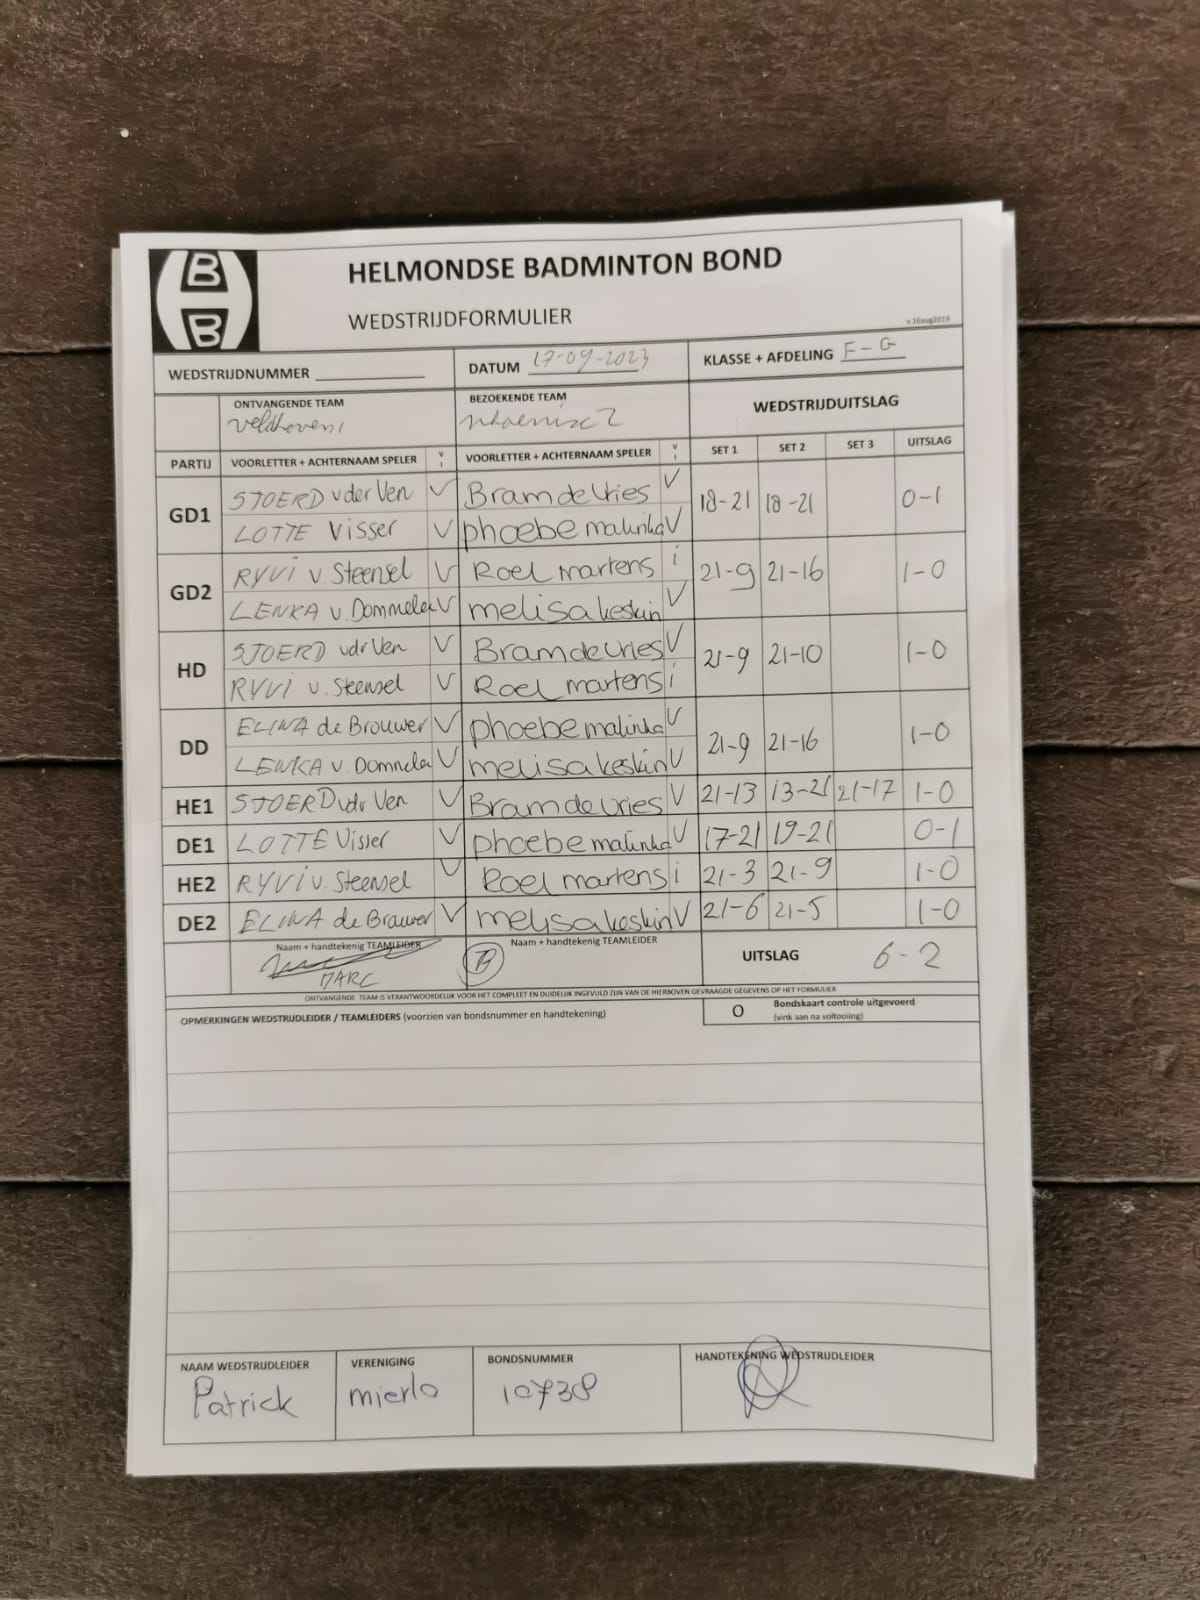 B
B
HELMONDSE BADMINTON BOND
WEDSTRIJDFORMULIER
v.16aug2019
WEDSTRIJDNUMMER DATUM 17-09-2023 KLASSE + AFDELING E-G
ONTVANGENDE TEAM BEZOEKENDE TEAM WEDSTRIJDUITSLAG
Veldhoven 1
PARTIJ VOORLETTER + ACHTERNAAM SPELER V I VOORLETTER + ACHTERNAAM SPELER V I SET 1 SET 2 SET 3 UITSLAG
GD1 SJOERD vder Ven V Bram de Vries V 18-21 18-21 0-1
LOTTE Visser V phoebe malinka V
GD2 RYVI v. Steensel V Roel martens i 21-9 21-16 1-0
LENKA v. Dommelen V melisa keskin V
HD SJOERD vdr Ven V Bram de Vries V 21-9 21-10 1-0
RYVI v. Steensel V Roel martens i
DD ELINA de Brouwer V phoebe malinka V 21-9 21-16 1-0
LENKA v. Dommelen V melisa keskin V
HE1 SJOERD vdr Ven V Bram de Vries V 21-13 13-21 21-17 1-0
DE1 LOTTE Visser V phoebe malinka V 17-21 19-21 0-1
HE2 RYVI v. Steensel V Roel martens i 21-3 21-9 1-0
DE2 ELINA de Brouwer V melisa keskin V 21-6 21-5 1-0
Naam + handtekenig TEAMLEIDER Naam + handtekenig TEAMLEIDER UITSLAG 6-2
MARC B
ONTVANGENDE TEAM IS VERANTWOORDELIJK VOOR HET COMPLEET EN DUIDELIJK INGEVULD ZIJN VAN DE HIERBOVEN GEVRAAGDE GEGEVENS OP HET FORMULIER
OPMERKINGEN WEDSTRIJDLEIDER / TEAMLEIDERS (voorzien van bondsnummer en handtekening) O Bondskaart controle uitgevoerd
(vink aan na voltooiing)
NAAM WEDSTRIJDLEIDER VERENIGING BONDSNUMMER HANDTEKENING WEDSTRIJDLEIDER
Patrick mierlo 10738